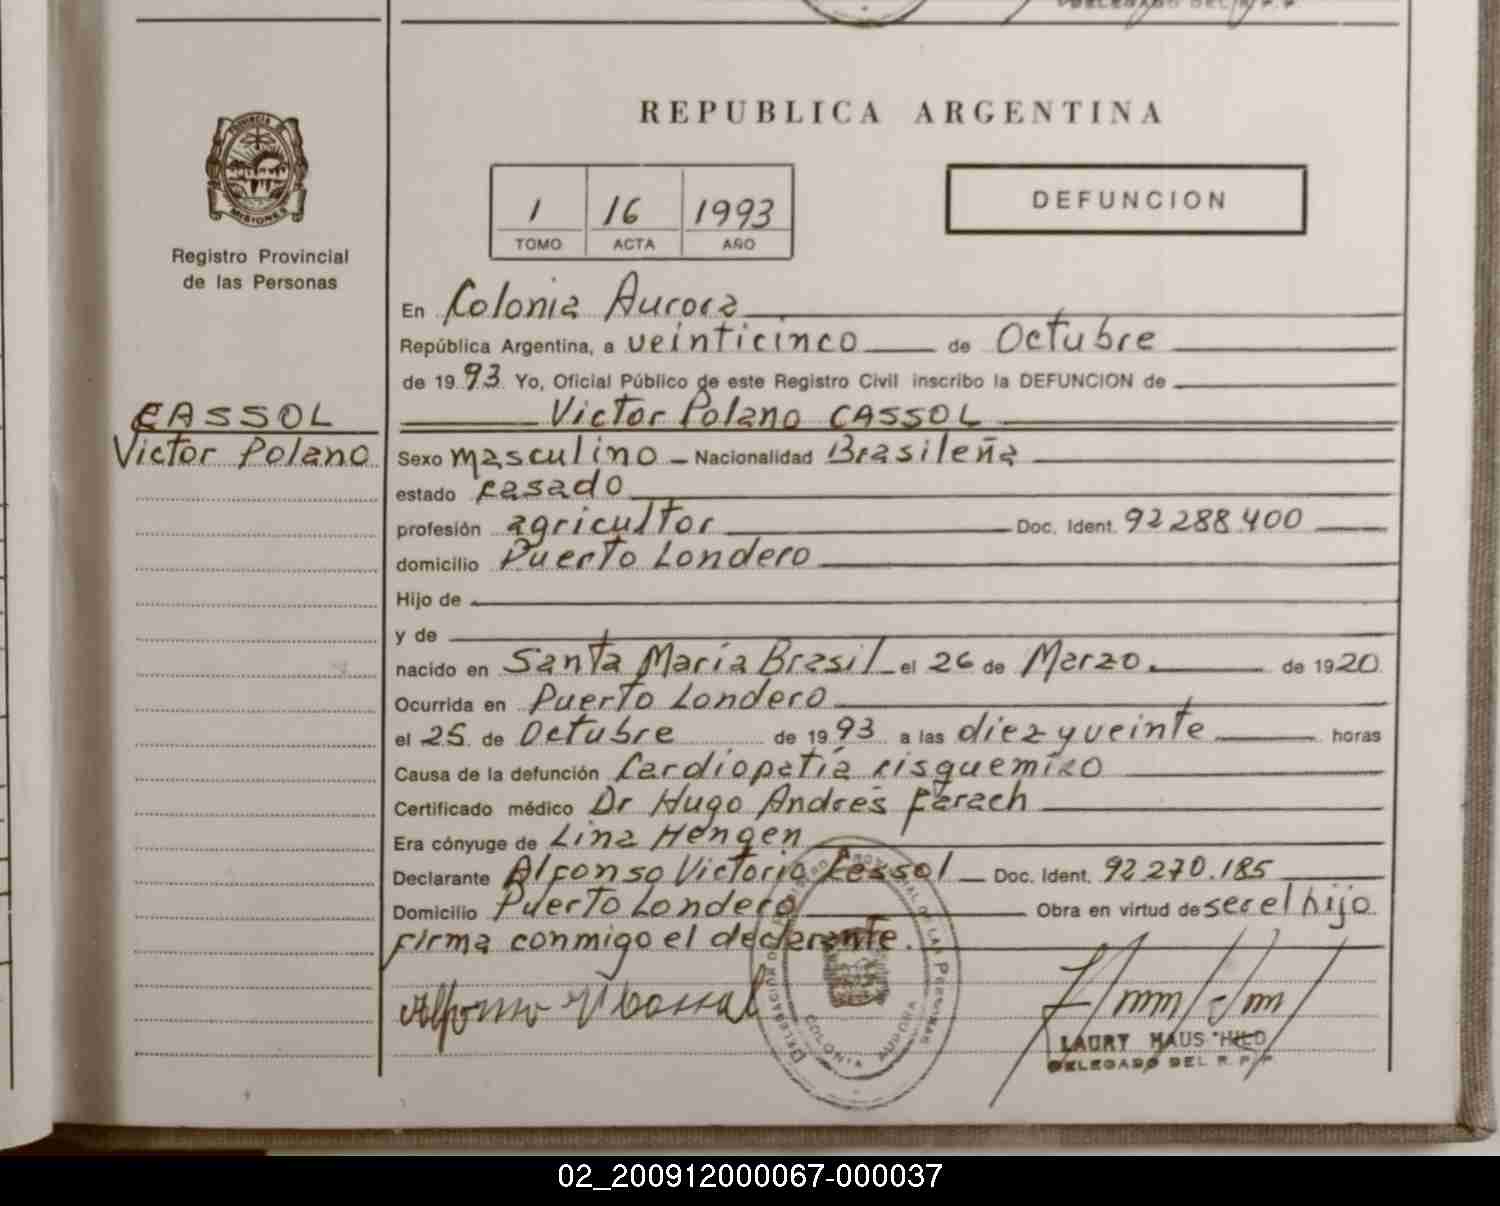 DELEGADO DEL R. P. P.
REPUBLICA ARGENTINA
PROVINCIA DE
MISIONES
1 16 1993
TOMO ACTA AÑO
DEFUNCION
Registro Provincial
de las Personas
En Colonia Aurora
República Argentina, a veinticinco de Octubre
de 1993. Yo, Oficial Público de este Registro Civil inscribo la DEFUNCION de
CASSOL
Victor Polano
Victor Polano CASSOL
Sexo masculino Nacionalidad Brasileña
estado casado
profesión agricultor Doc. Ident. 92 288.400
domicilio Puerto Londero
Hijo de
y de
nacido en Santa María Brasil el 26 de Marzo. de 1920
Ocurrida en Puerto Londero
el 25 de Octubre de 1993 a las diez y veinte horas
Causa de la defunción Cardiopatía cisquemico
Certificado médico Dr Hugo Andrés Farach
Era cónyuge de Lina Hengen
Declarante Alfonso Victorio Cassol Doc. Ident. 92.270.185
Domicilio Puerto Londero Obra en virtud de ser el hijo
firma conmigo el declarante.
Alfonso V Cassol
DELEGACION REGISTRO PROVINCIAL DE LAS PERSONAS
COLONIA AURORA
LAURY HAUS HILD
DELEGADO DEL R. P. P.
02_200912000067-000037